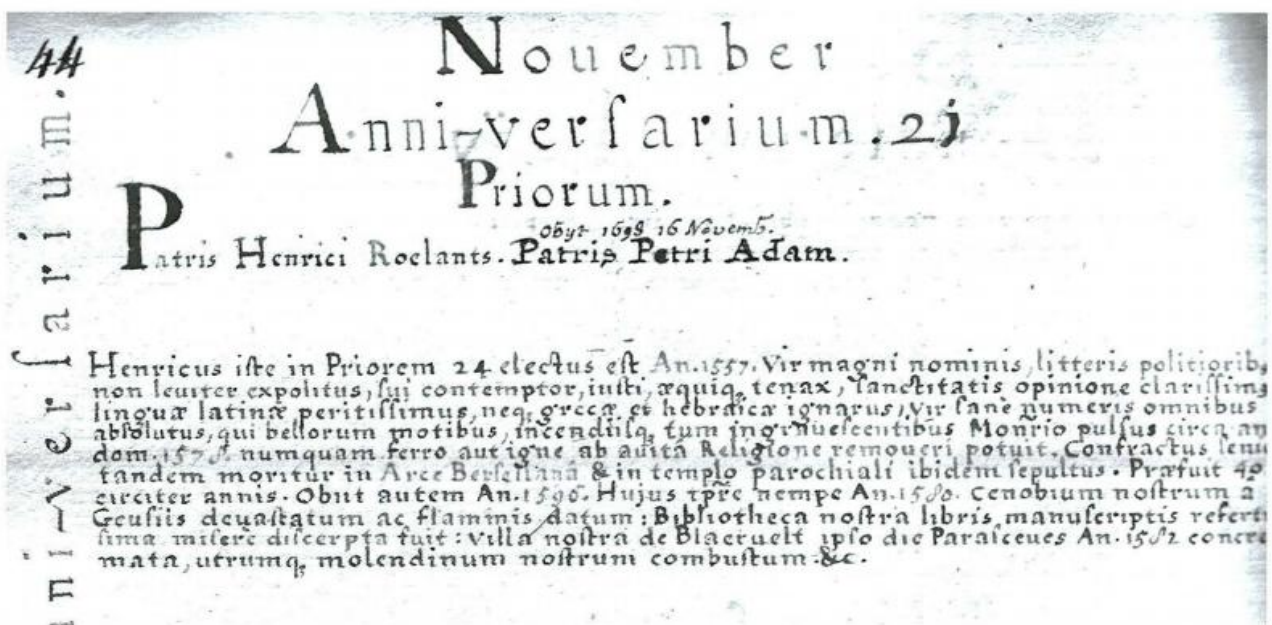 44
November
Anni-versarium. 2j
Priorum.
Obyt 1698 16 Novemb.
Patris Henrici Roelants. Patris Petri Adam.
Henricus iste in Priorem 24 electus est An. 1557. Vir magni nominis, litteris politiorib,
non leuiter expolitus, sui contemptor, iusti, æquiq, tenax, sanctitatis opinione clarissim9
linguæ latinæ peritissimus, neq, grecæ et hebraicæ ignarus, vir sane numeris omnibus
absolutus, qui bellorum motibus, incendiisq, tum ingruescentibus Monrio pulsus circa an
dom. numquam ferro aut igne ab auitâ Religione remoueri potuit. Confractus
tandem moritur in Arce & in templo parochiali ibidem sepultus. Præfuit 40
circiter annis. Obiit autem An. Hujus tpre nempe An. 1580. Cenobium nostrum à
Geusiis deuastatum ac flaminis datum: Bibliotheca nostra libris manuscriptis refert
sima miserè discerpta fuit: Villa nostra de Blaeruelt ipso die Parasceues An. 1582 concre
mata, utrumq, molendinum nostrum combustum &c.
ni-versarium.